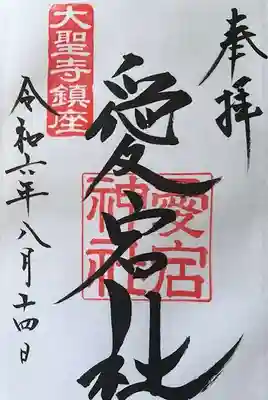 奉拝
愛宕社
愛宕
神社
大聖寺鎮座
令和六年八月十四日